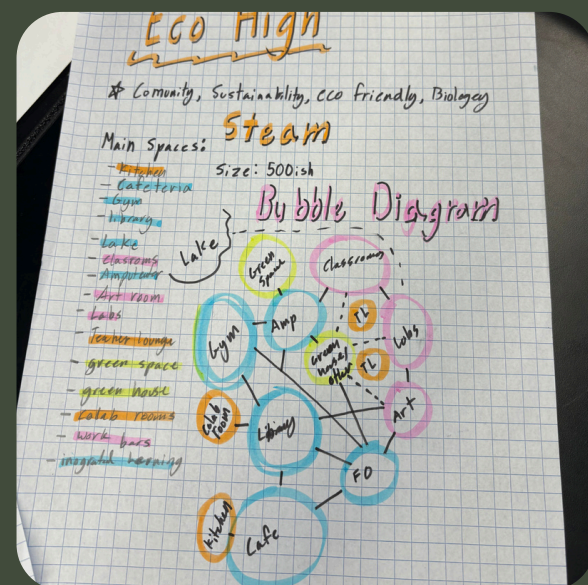 Eco High
☆ Comunity, Sustainability, eco friendly, Biologey
Steam
Main Spaces:
Size: 500ish
- Kitchen
- Cafeteria
- Gym
- library
- Lake
- clasroms
- Amputater
- Art room
- Labs
- Teacher lounge
- green space
- green house
- Colab rooms
- work bars
Bubble Diagram
Lake
Green
Space
Classrooms
Gym
Amp
TL
Labs
TL
Art
Colab
room
Library
FO
Kitchen
Cafe